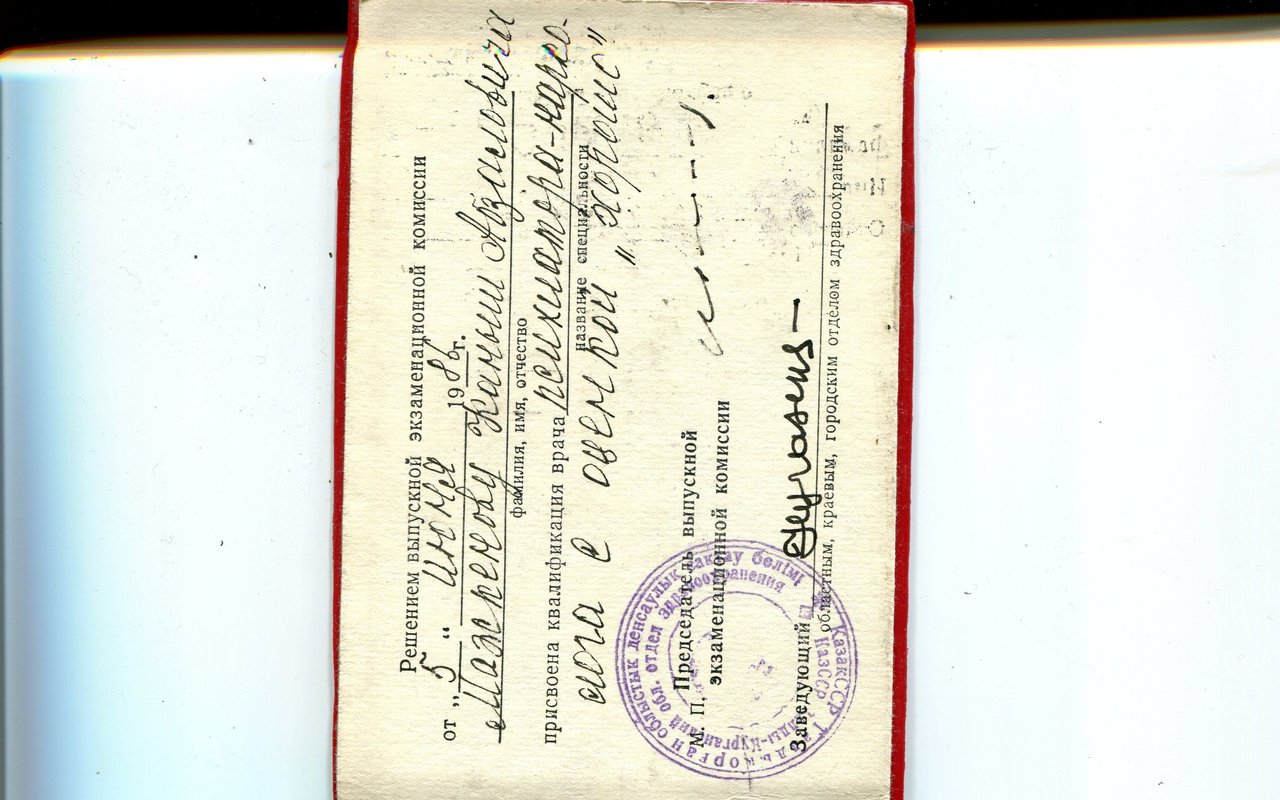 Решением выпускной экзаменационной комиссии
от „5“ июня 1986г.
Жаныш Абзасловичу
фамилия, имя, отчество
присвоена квалификация врача психиатора-нарко-
лога с оценкой „хорошо“
название специальности
М. П. Председатель выпускной
экзаменационной комиссии
Заведующий
областным, краевым, городским отделом здравоохранения
КазакССР Талды-Корган облыстык денсаулык сактау бөлімі
КазССР Талды-Курганский обл. отдел здравоохранения